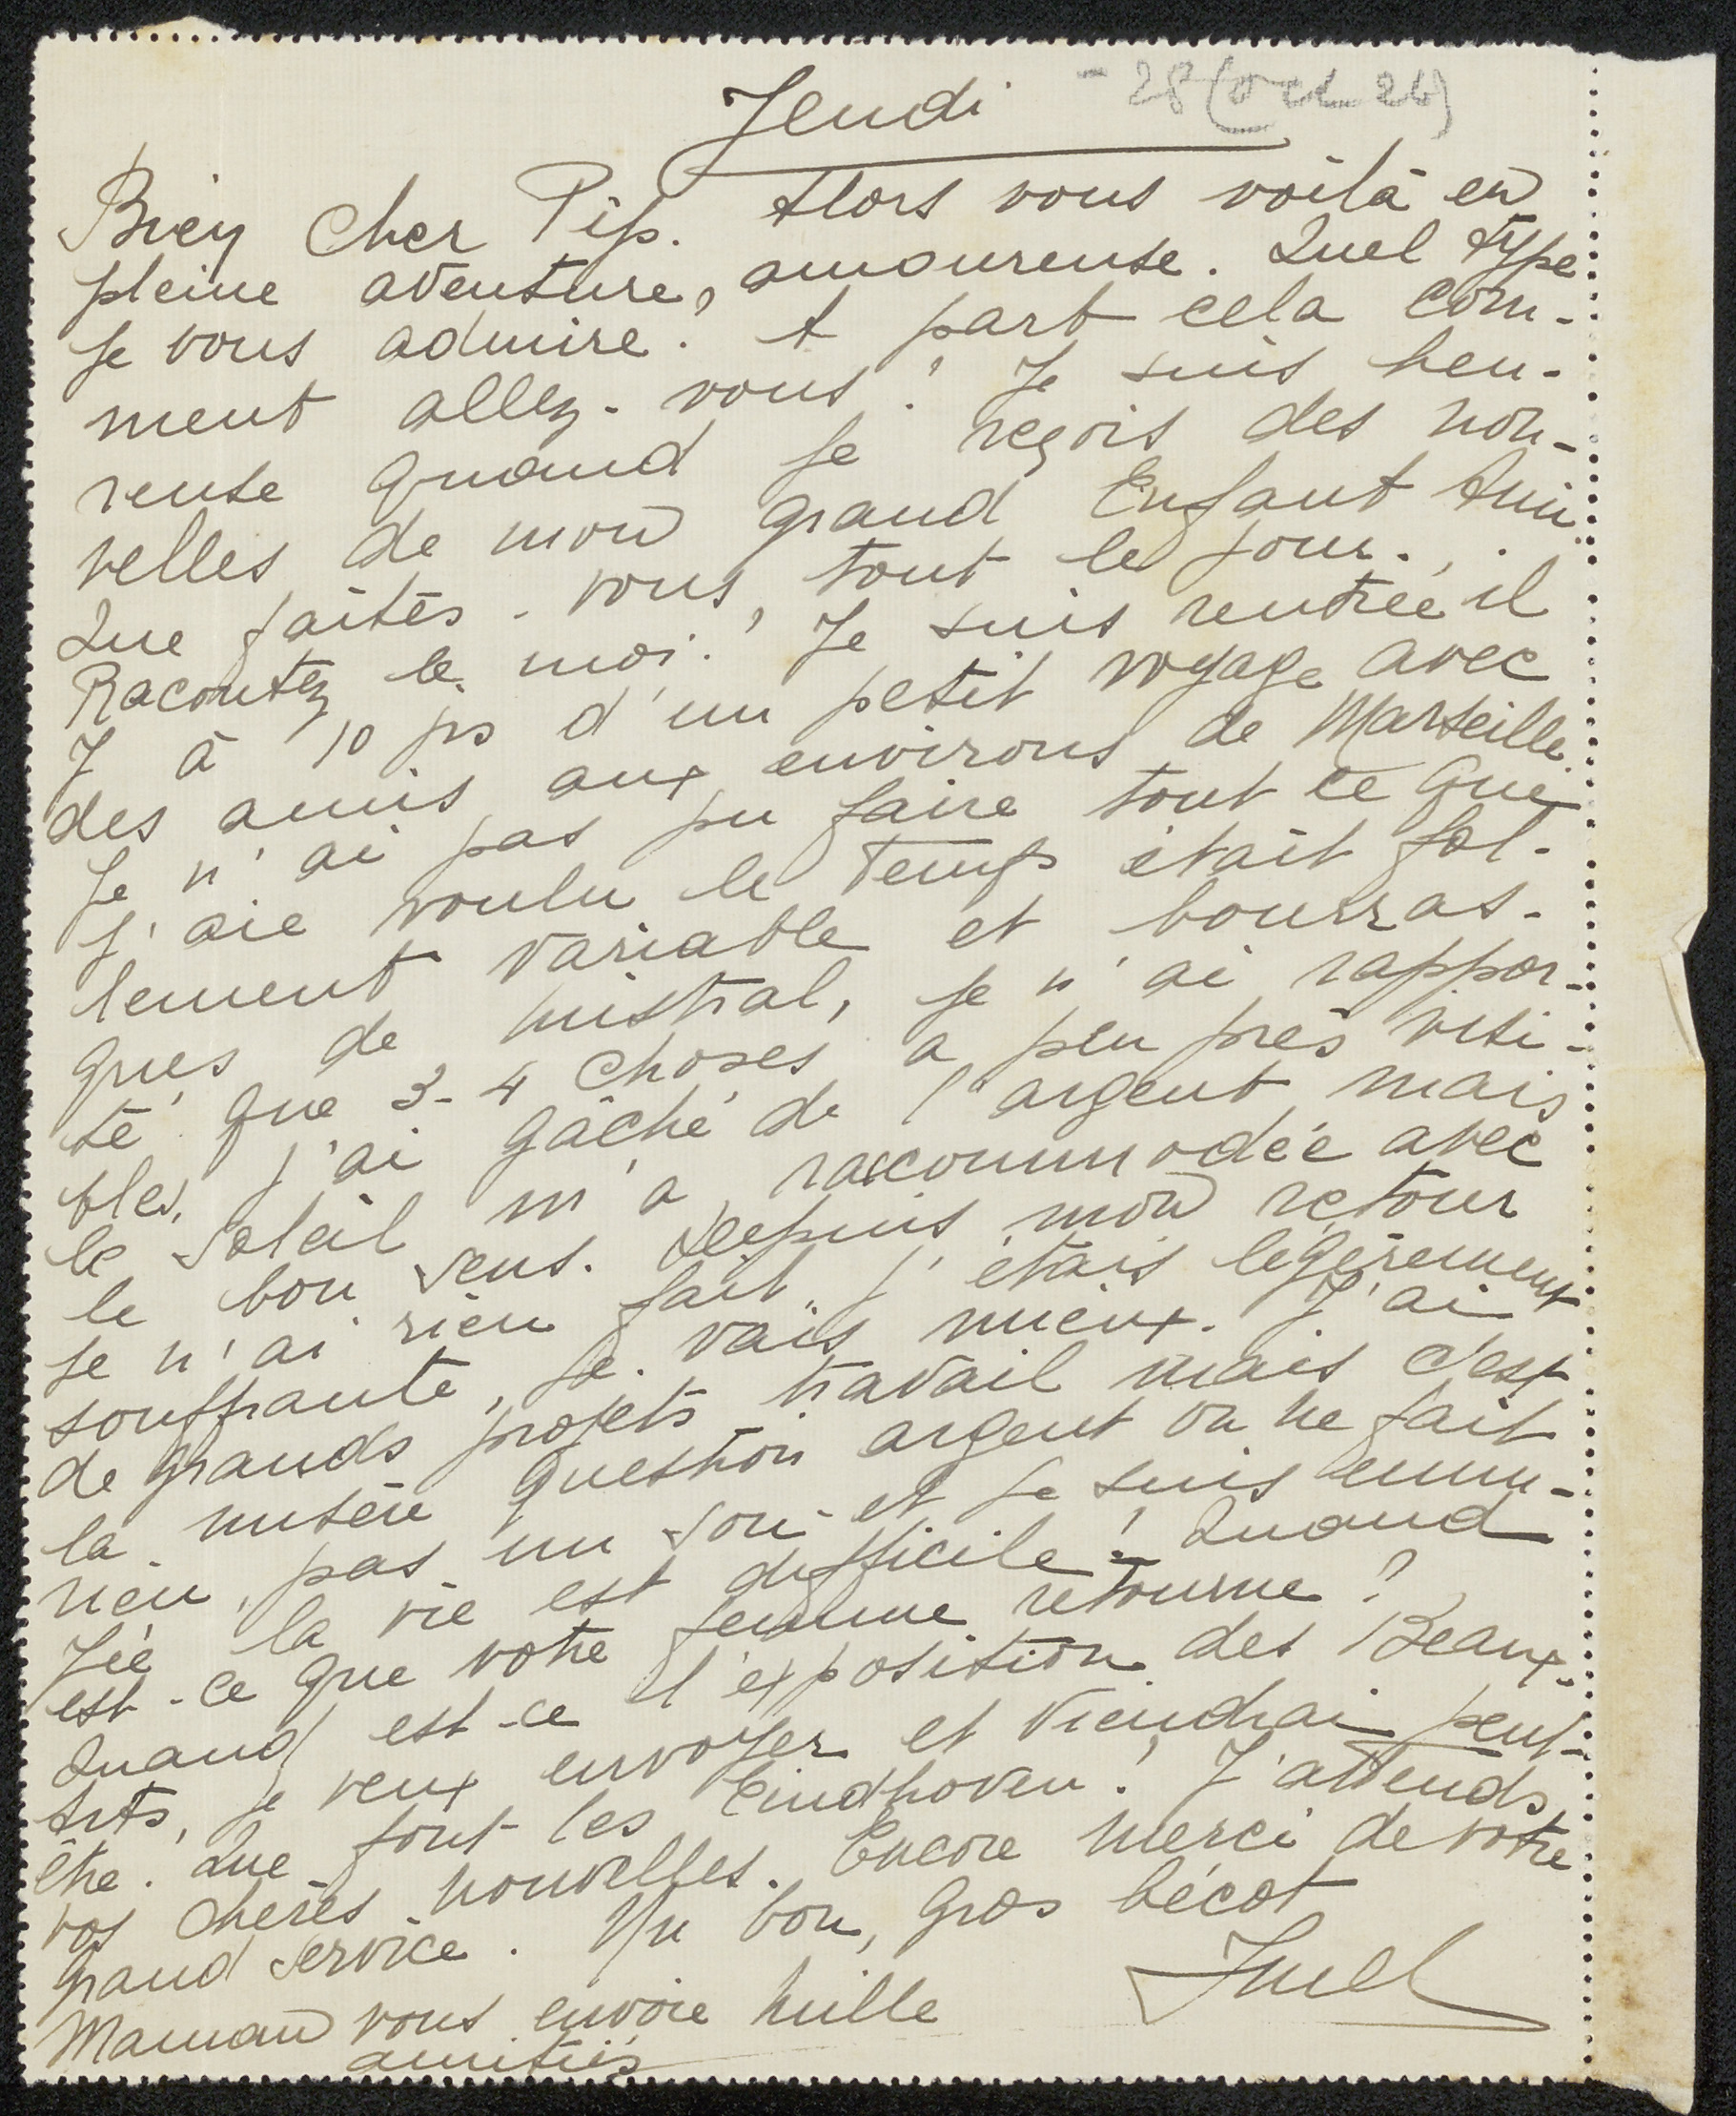 Jeudi - 28 (Oct. 26)
Bien Cher Pip. Alors vous voilà en
pleine aventure, amoureuse. Quel type
je vous admire! A part cela com-
ment allez-vous? Je suis heu-
reuse quand je reçois des nou-
velles de mon grand Enfant Ami.
Que faites-vous, tout le jour.
Racontez le moi! Je suis rentrée il
y à 10 jrs d'un petit voyage avec
des amis aux environs de Marseille.
Je n'ai pas pu faire tout ce que
j'aie voulu le temps était fol-
lement variable et bourras-
ques de mistral, je n'ai rappor-
té que 3-4 choses a peu près visi-
bles, j'ai gâché de l'argent mais
le soleil m'a raccommodée avec
le bon sens. Depuis mon retour
je n'ai rien fait, j'étais légèrement
souffrante, je vais mieux. J'ai
de grands projets travail mais c'est
la misère question argent on ne fait
rien, pas un sou et je suis ennu-
yée la vie est difficile! Quand
est-ce que votre femme retourne?
Quand est-ce l'exposition des Beaux-
Arts, je veux envoyer et viendrai peut-
être. Que font les Eindhoven! J'attends
vos chères nouvelles. Encore merci de votre
grand service. Un bon, gros bécot
Juel
Maman vous envoie mille
amitiés